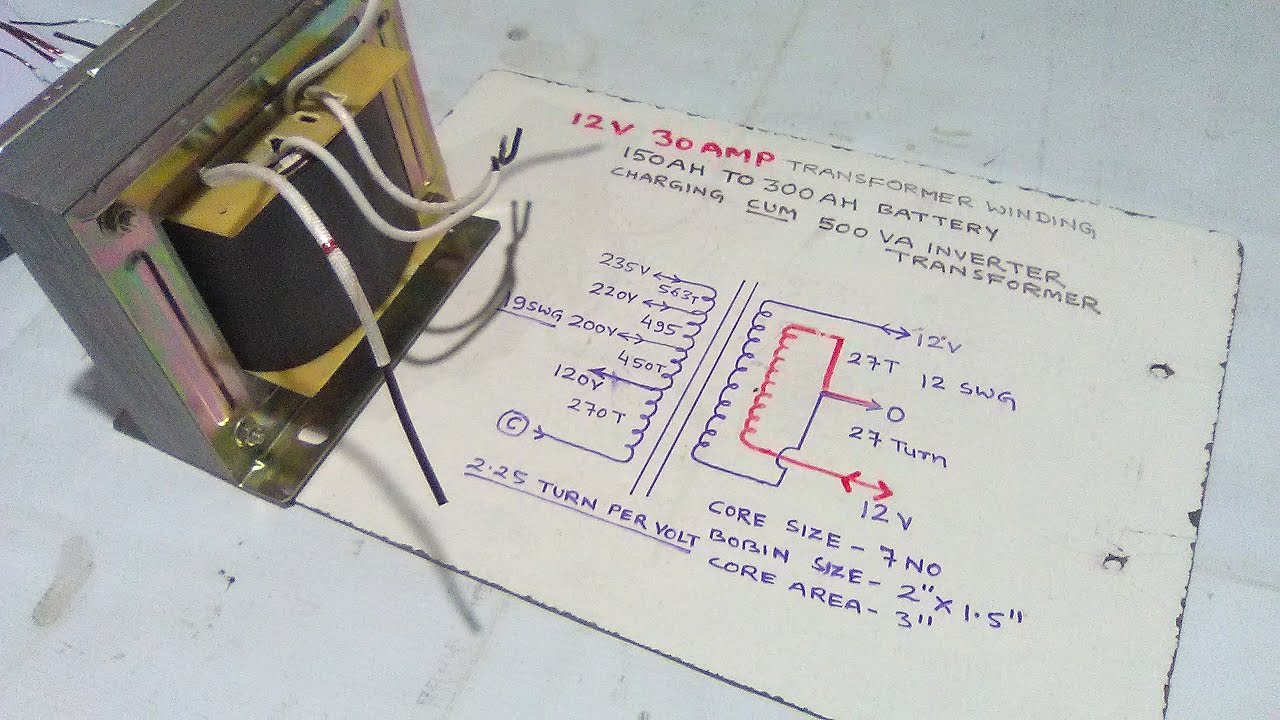 12V 30AMP TRANSFORMER WINDING
150AH TO 300AH BATTERY
CHARGING CUM 500 VA INVERTER
TRANSFORMER
235V
563T
220V
495
19SWG 200V
450T
120V
270T
C
2.25 TURN PER VOLT
12V
27T 12 SWG
O
27 Turn
12V
CORE SIZE - 7 NO
BOBIN SIZE - 2" X 1.5"
CORE AREA - 3"